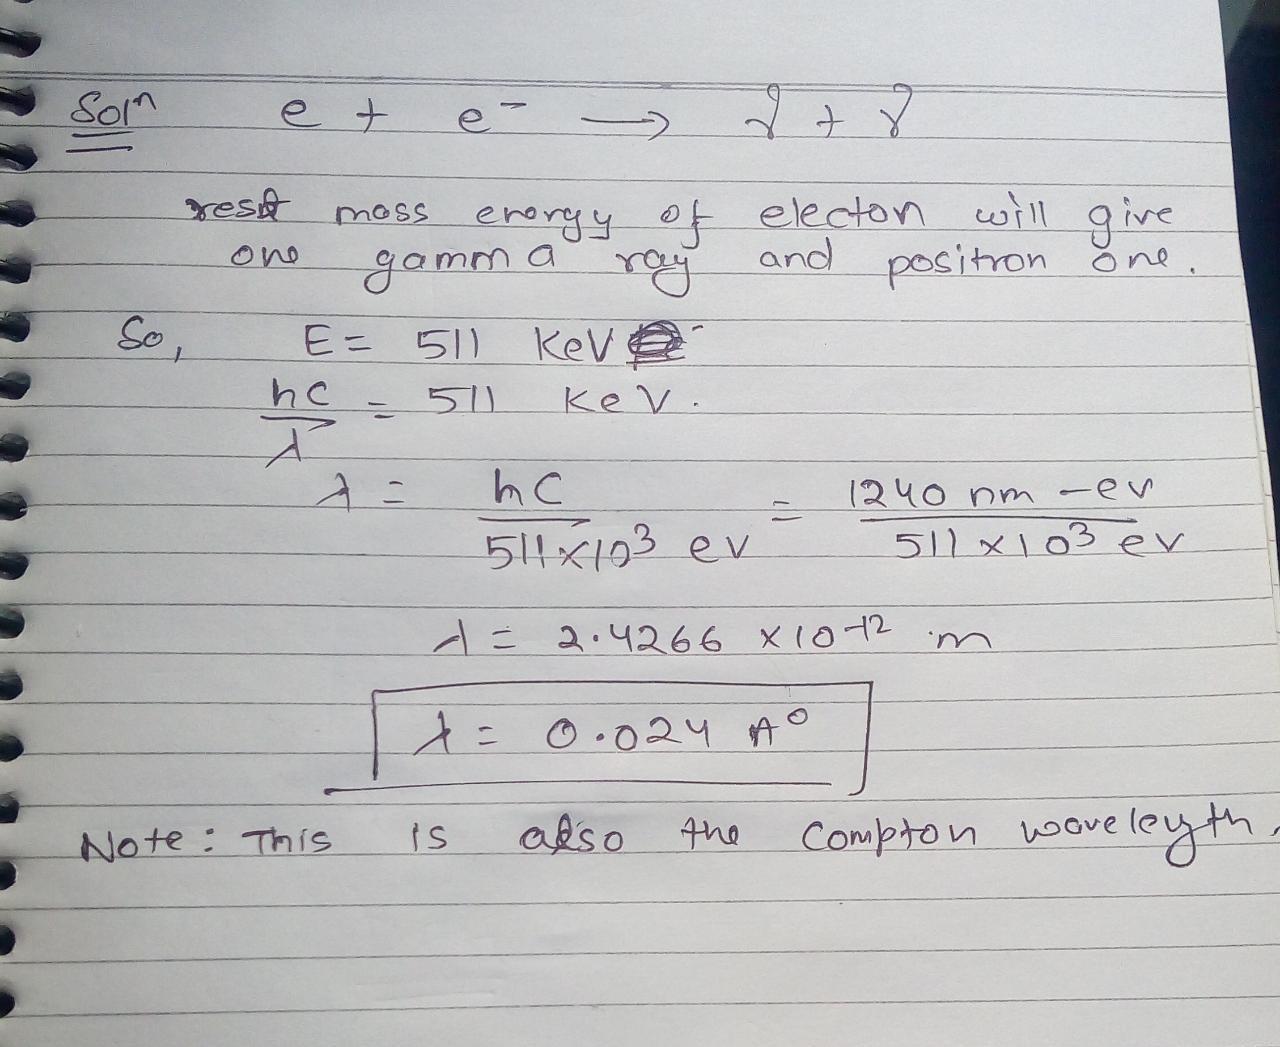 Solⁿ e + e⁻ → γ + γ
rest mass energy of electon will give
one gamma ray and positron one.
So, E = 511 KeV
hc/λ = 511 KeV.
λ = hC/511×10³ ev = 1240 nm-ev/511×10³ ev
λ = 2.4266 ×10⁻¹² m
λ = 0.024 A⁰
Note: This is also the Compton waveleyth.